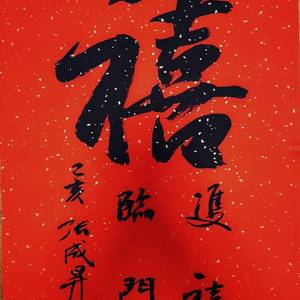 禧
進禧
臨門
己亥 張成昇